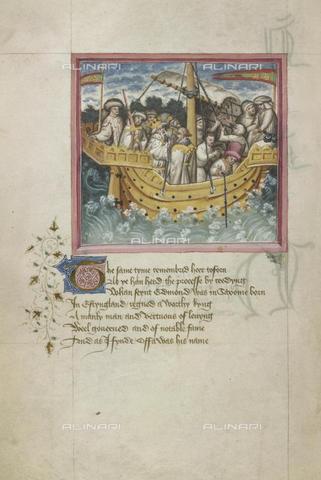 ALINARI
ALINARI
ALINARI
ALINARI
The same tyme remembrid heer toforn
As ye han herd the processe by redyng
Whan seynt Edmond was in Saxonie born
In Estyngland regned a worthy kyng
A manly man and vertuous of levyng
Weel governed and of notable fame
And as I fynde Offa was his name
ALINARI
ALINARI